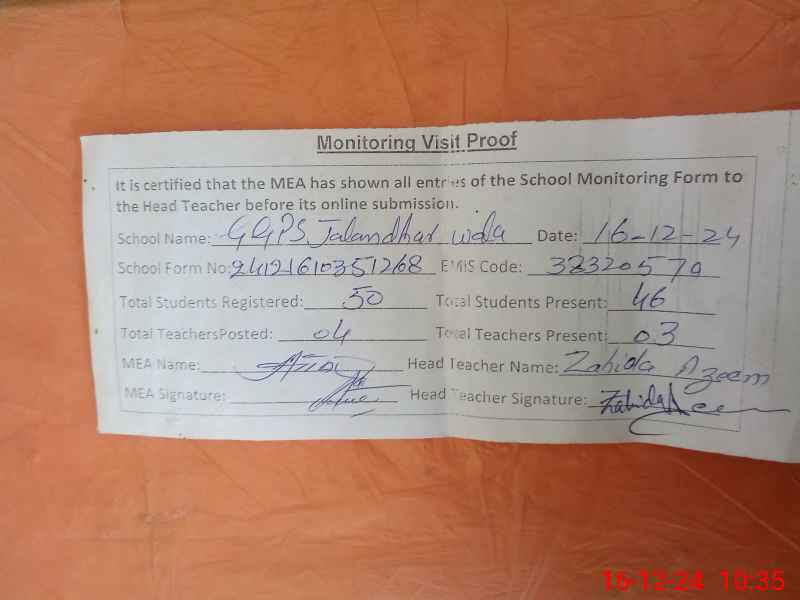 Monitoring Visit Proof
It is certified that the MEA has shown all entries of the School Monitoring Form to
the Head Teacher before its online submission.
School Name: GGPS Jalandhar wala Date: 16-12-24
School Form No: 24121610351268 EMIS Code: 38320570
Total Students Registered: 50 Total Students Present: 46
Total TeachersPosted: 04 Total Teachers Present: 03
MEA Name: Head Teacher Name: Zahida Azeem
MEA Signature: Head Teacher Signature: Zahida
16-12-24 10:35